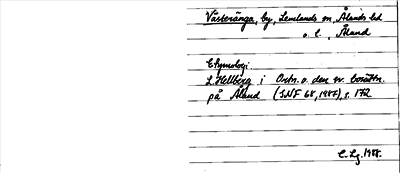 Västeränga, by, Lemlands sn, Ålands hd
o. l., Åland
Etymologi.
L. Hellberg i Ortn. o. den sv. bosättn.
på Åland (SNF 68, 1987), s. 172
C. Lg. 1988.